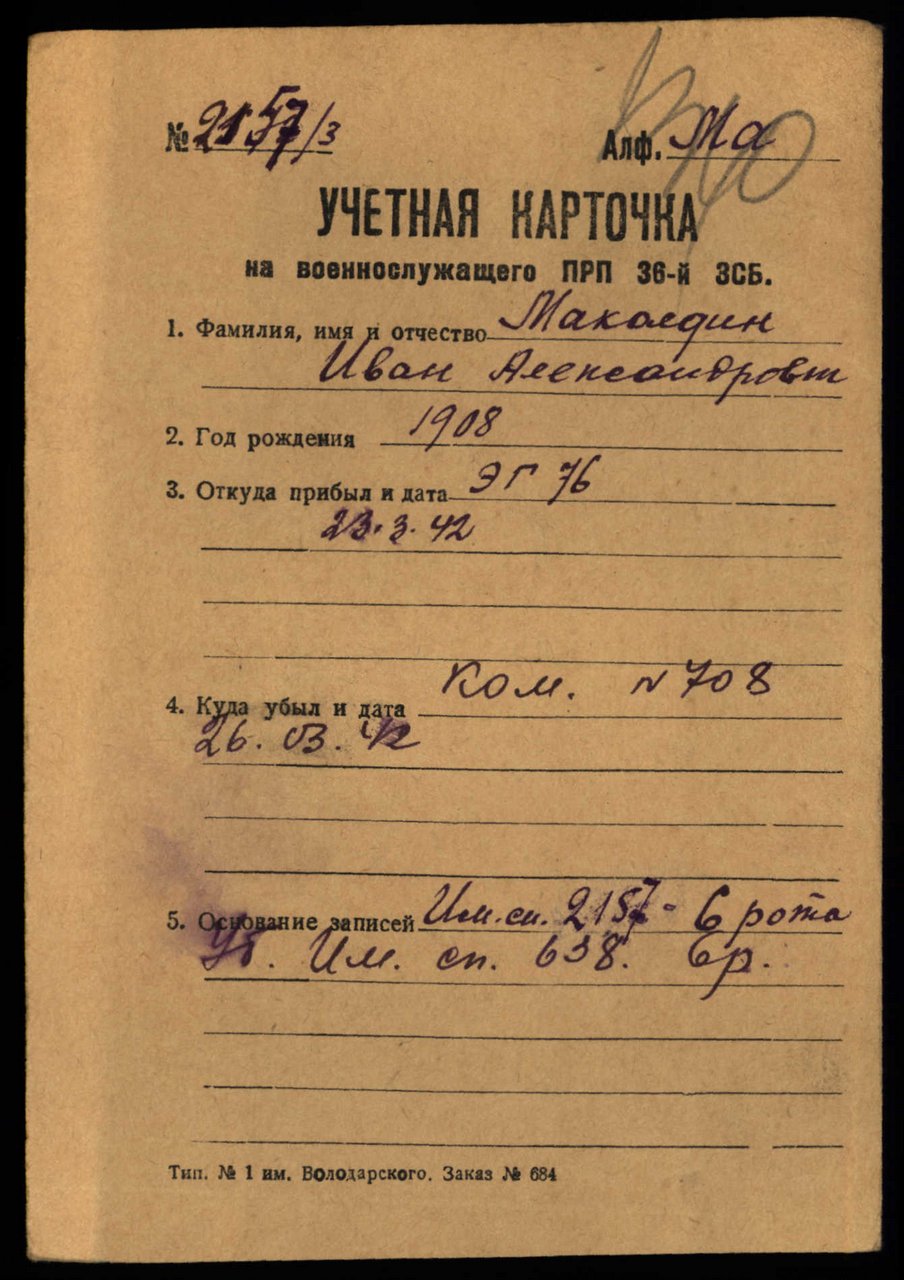 № 2157/3 Алф. Ма
УЧЕТНАЯ КАРТОЧКА
на военнослужащего ПРП 36-й ЗСБ.
1. Фамилия, имя и отчество Маколдин
Иван Александрович
2. Год рождения 1908
3. Откуда прибыл и дата ЭГ 76
23.3.42
4. Куда убыл и дата Ком. N 708
26.03.42
5. Основание записей Им.сп. 2157- 6 рота
Уб. Им. сп. 638. 6р.
Тип. № 1 им. Володарского. Заказ № 684